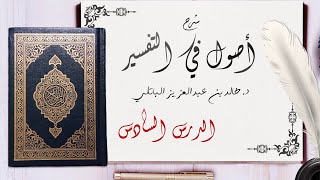 شرح
أصول في التفسير
د. خالد بن عبدالعزيز الباتلي
الدرس السادس